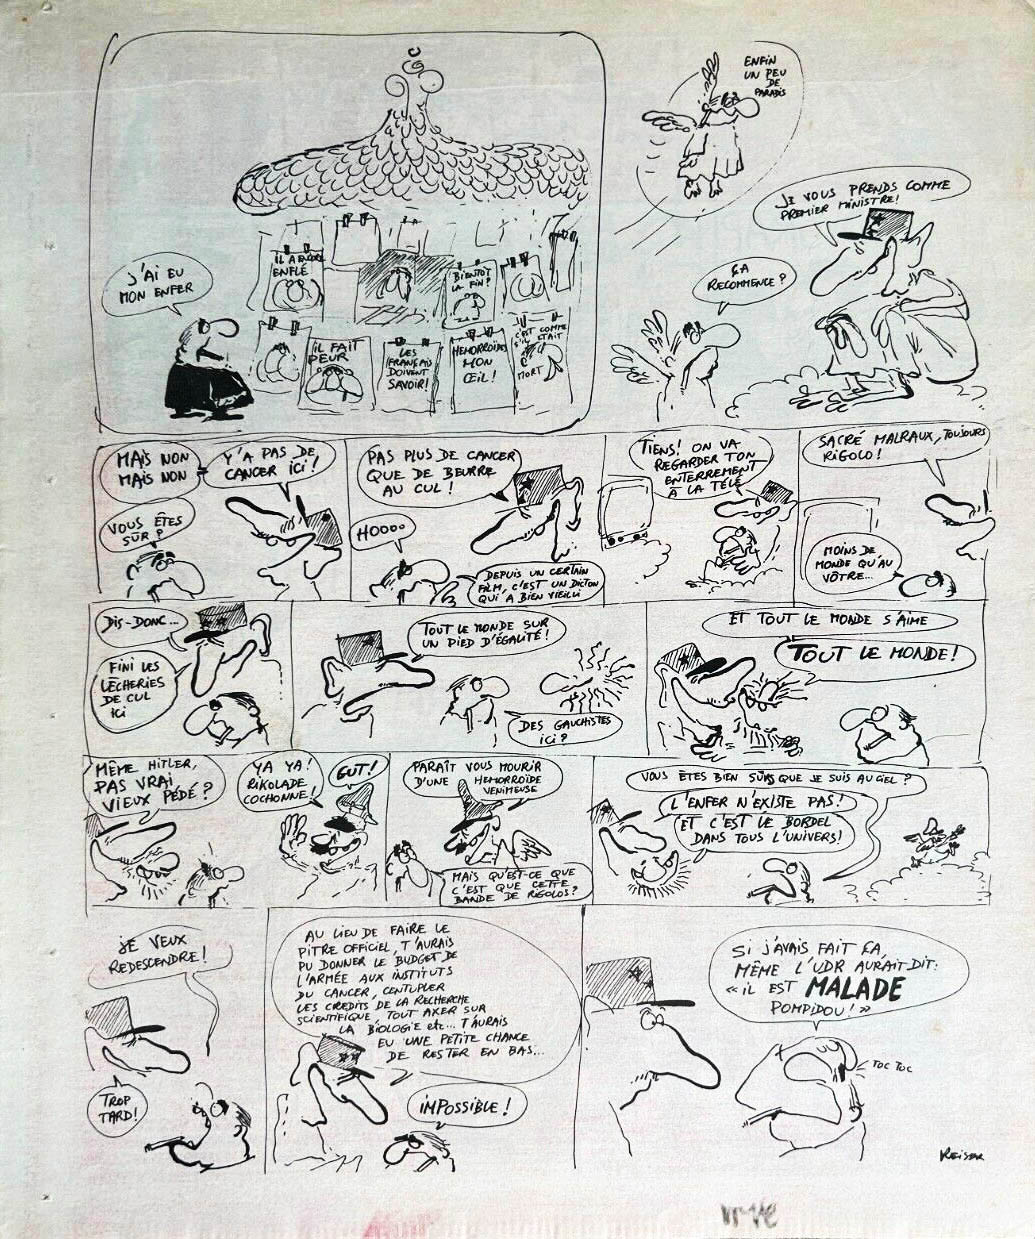 J'AI EU
MON ENFER
IL A ENCORE
ENFLÉ
BIENTÔT
LA FIN?
IL FAIT
PEUR
LES
FRANÇAIS
DOIVENT
SAVOIR!
HEMORROÏDES
MON
ŒIL!
C'EST COMME
S'IL ÉTAIT
MORT
ENFIN
UN PEU
DE
PARADIS
JE VOUS PRENDS COMME
PREMIER MINISTRE!
ÇA
RECOMMENCE?
MAIS NON
MAIS NON
Y'A PAS DE
CANCER ICI!
VOUS ÊTES
SÛR?
PAS PLUS DE CANCER
QUE DE BEURRE
AU CUL!
HOOOO
DEPUIS UN CERTAIN
FILM, C'EST UN DICTON
QUI A BIEN VIEILLI
TIENS! ON VA
REGARDER TON
ENTERREMENT
À LA TÉLÉ
SACRÉ MALRAUX, TOUJOURS
RIGOLO!
MOINS DE
MONDE QU'AU
VÔTRE...
DIS-DONC...
FINI LES
LÈCHERIES
DE CUL
ICI
TOUT LE MONDE SUR
UN PIED D'ÉGALITÉ!
DES GAUCHISTES
ICI?
ET TOUT LE MONDE S'AIME
TOUT LE MONDE!
MÊME HITLER,
PAS VRAI
VIEUX PÉDÉ?
YA YA!
RIKOLADE
COCHONNE!
GUT!
PARAÎT VOUS MOURIR
D'UNE HEMORROÏDE
VENIMEUSE
MAIS QU'EST-CE QUE
C'EST QUE CETTE
BANDE DE RIGOLOS?
VOUS ÊTES BIEN SÛRS QUE JE SUIS AU CIEL?
L'ENFER N'EXISTE PAS!
ET C'EST LE BORDEL
DANS TOUS L'UNIVERS!
JE VEUX
REDESCENDRE!
TROP
TARD!
AU LIEU DE FAIRE LE
PITRE OFFICIEL, T'AURAIS
PU DONNER LE BUDGET DE
L'ARMÉE AUX INSTITUTS
DU CANCER, CENTUPLER
LES CRÉDITS DE LA RECHERCHE
SCIENTIFIQUE, TOUT AXER SUR
LA BIOLOGIE etc... T'AURAIS
EU UNE PETITE CHANCE
DE RESTER EN BAS...
IMPOSSIBLE!
SI J'AVAIS FAIT ÇA,
MÊME L'UDR AURAIT DIT:
« IL EST MALADE
POMPIDOU! »
TOC TOC
REISER